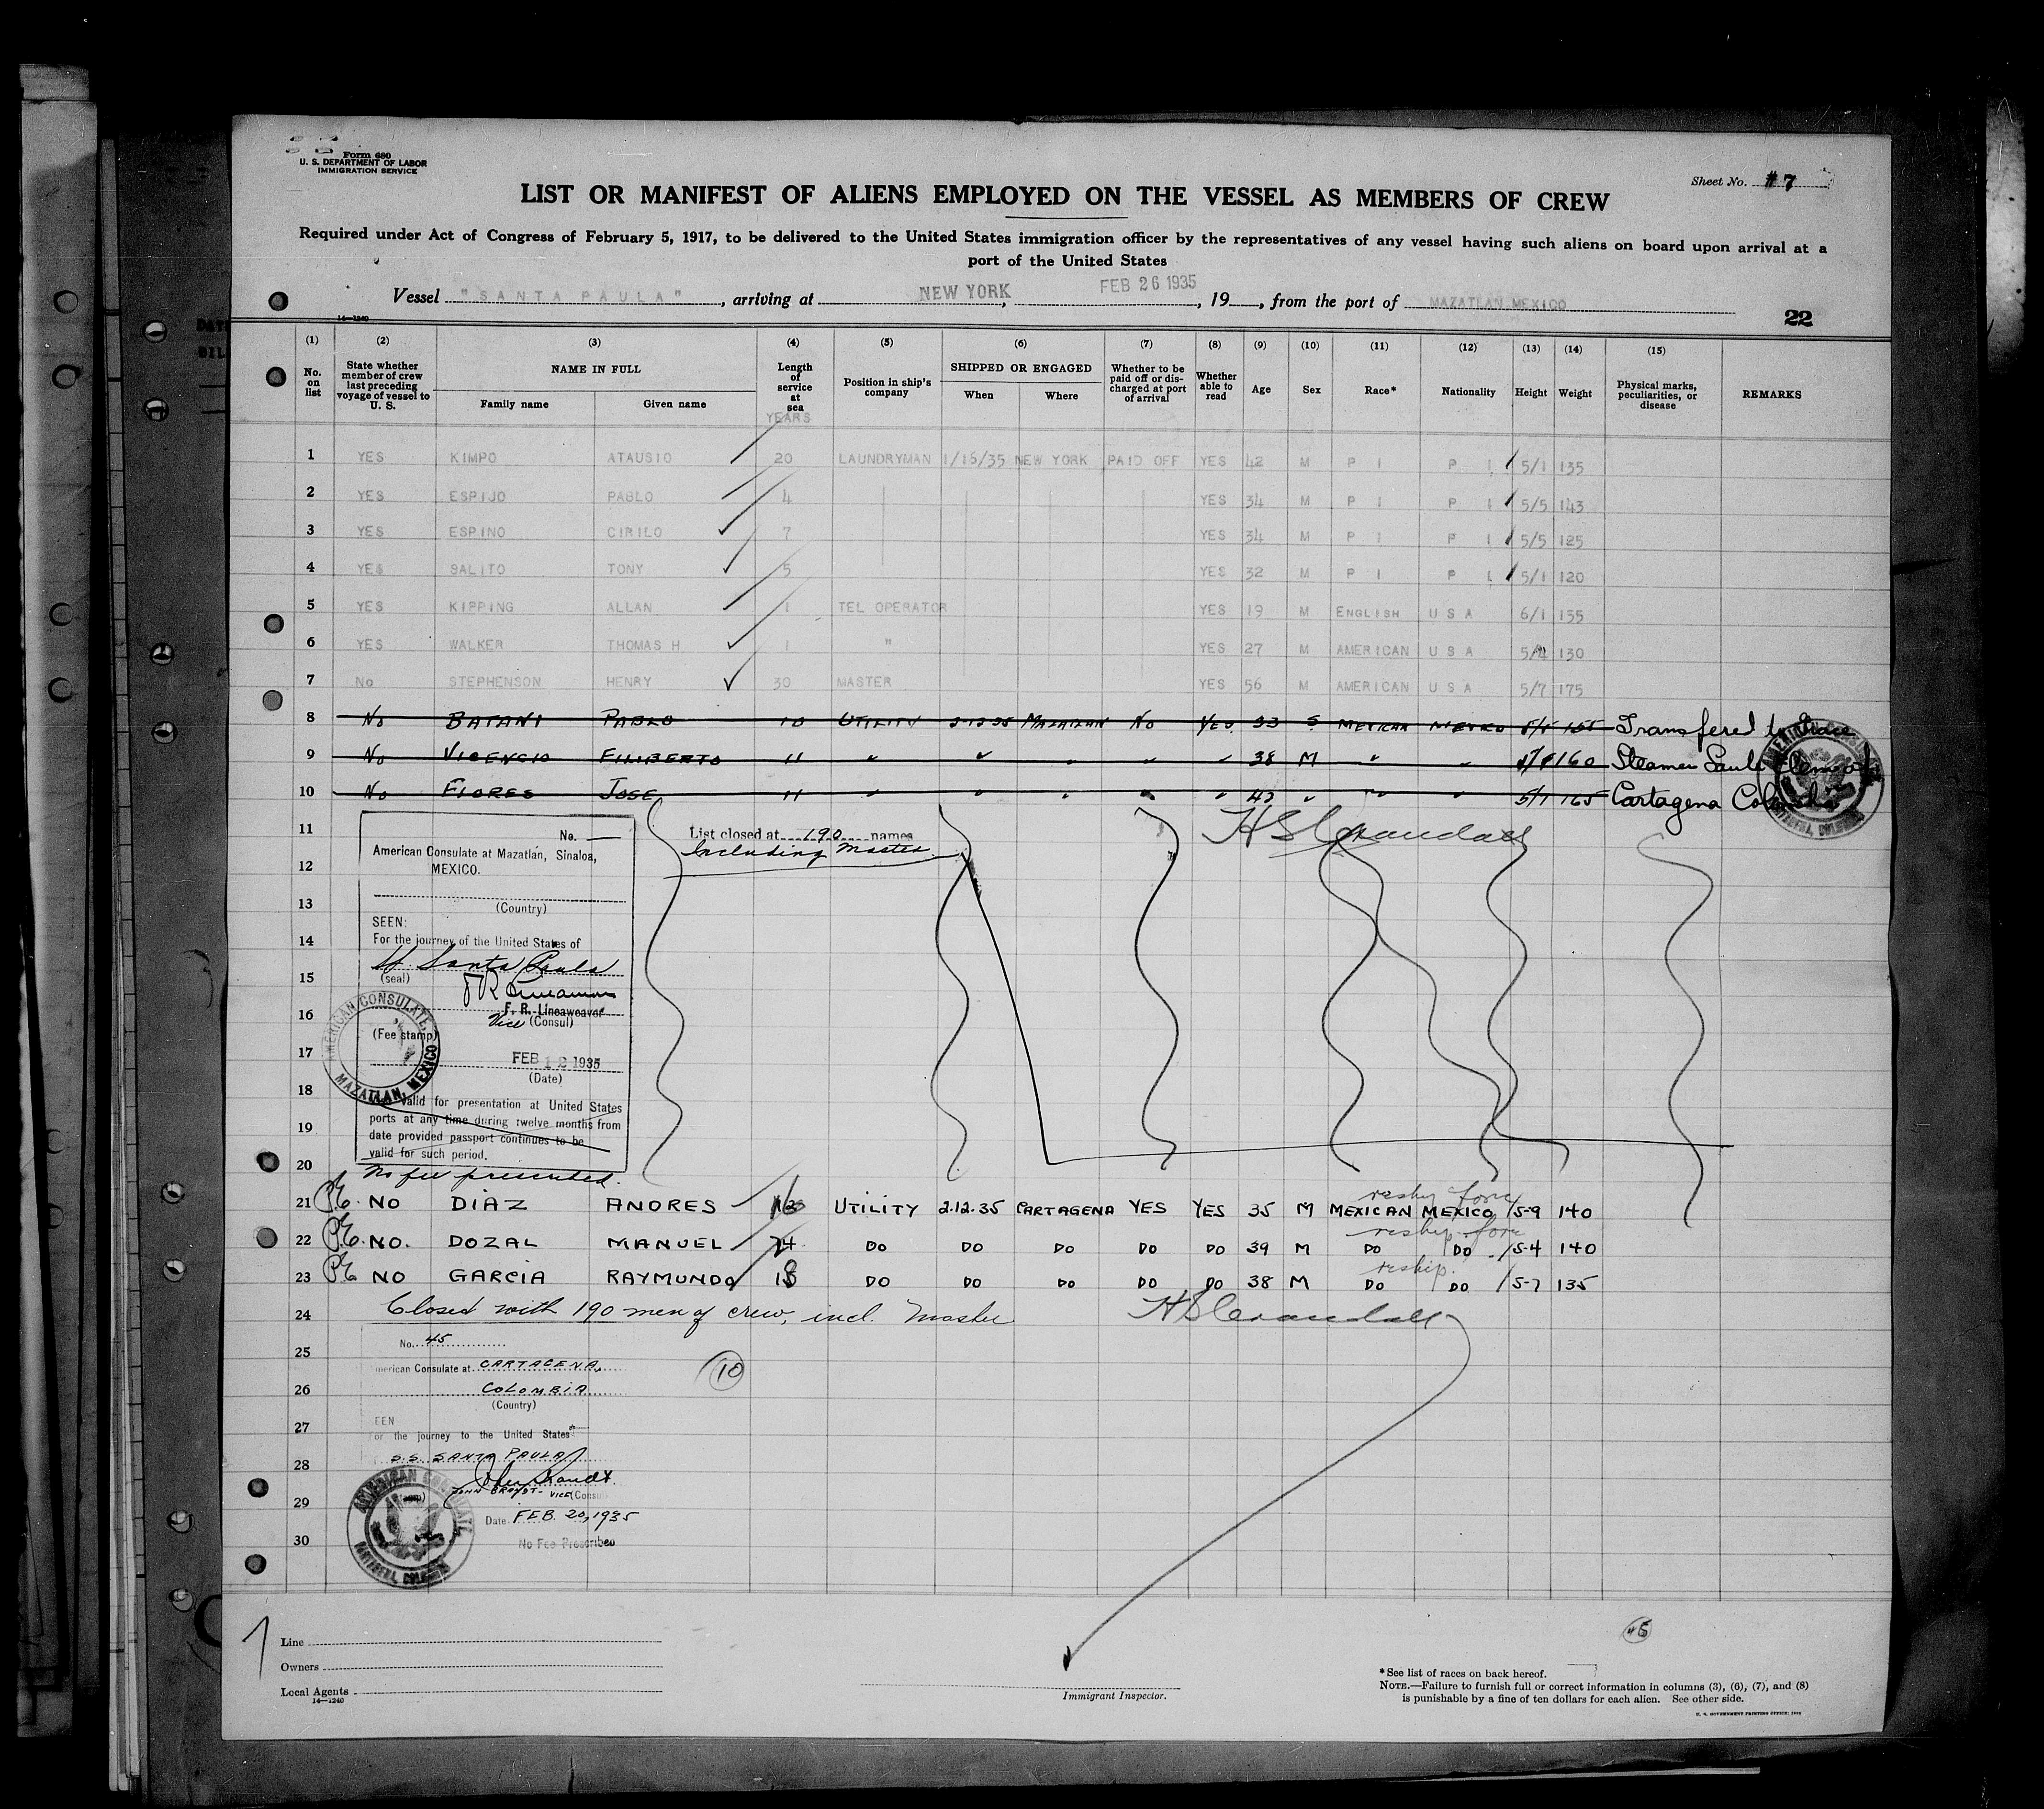 Form 680
U. S. DEPARTMENT OF LABOR
IMMIGRATION SERVICE
Sheet No. #7
LIST OR MANIFEST OF ALIENS EMPLOYED ON THE VESSEL AS MEMBERS OF CREW
Required under Act of Congress of February 5, 1917, to be delivered to the United States immigration officer by the representatives of any vessel having such aliens on board upon arrival at a
port of the United States
Vessel "SANTA PAULA", arriving at NEW YORK, FEB 26 1935, 19, from the port of MAZATLAN MEXICO
14—1240
22
(1) (2) (3) (4) (5) (6) (7) (8) (9) (10) (11) (12) (13) (14) (15)
No. on list
State whether member of crew last preceding voyage of vessel to U. S.
NAME IN FULL
Family name
Given name
Length of service at sea
YEARS
Position in ship's company
SHIPPED OR ENGAGED
When
Where
Whether to be paid off or discharged at port of arrival
Whether able to read
Age
Sex
Race*
Nationality
Height
Weight
Physical marks, peculiarities, or disease
REMARKS
1 YES KIMPO ATAUSIO 20 LAUNDRYMAN 1/16/35 NEW YORK PAID OFF YES 42 M P I P I 5/1 135
2 YES ESPIJO PABLO 4 YES 34 M P I P I 5/5 143
3 YES ESPINO CIRILO 7 YES 34 M P I P I 5/5 125
4 YES SALITO TONY 5 YES 32 M P I P I 5/1 120
5 YES KIPPING ALLAN 1 TEL OPERATOR YES 19 M ENGLISH U S A 6/1 155
6 YES WALKER THOMAS H 1 " YES 27 M AMERICAN U S A 5/ 130
7 No STEPHENSON HENRY 30 MASTER YES 56 M AMERICAN U S A 5/7 175
8 No BATANI PABLO 10 UTILITY 2-12-35 MAZATLAN No YES 33 S MEXICAN MEXICO 5/5 165 Transfered to Grace
9 No VICENCIO FILIBERTO 11 " " " " " 38 M " " 160 Steamer Santa Elena
10 No FLORES JOSE 11 " " " " " " " " 5/7 165 Cartagena Colombia
AMERICAN CONSULATE CARTAGENA, COLOMBIA
11 List closed at 190 names
H S Crandall
Including Master
12
13
14
15
16
17
18
19
20
No. —
American Consulate at Mazatlán, Sinaloa,
MEXICO.
(Country)
SEEN:
For the journey of the United States of
SS. Santa Paula
(seal)
F. R. Lineaweaver
Vice (Consul)
(Fee stamp)
AMERICAN CONSULATE, MAZATLAN, MEXICO
FEB 12 1935
(Date)
Valid for presentation at United States
ports at any time during twelve months from
date provided passport continues to be
valid for such period.
No fee prescribed.
21 NO DIAZ ANDRES UTILITY 2.12.35 CARTAGENA YES YES 35 M MEXICAN MEXICO 5-9 140
22 NO. DOZAL MANUEL DO DO DO DO DO 39 M DO DO 5-4 140
23 NO GARCIA RAYMUNDO 18 DO DO DO DO DO 38 M DO DO 5-7 135
reship.
24 Closed with 190 men of crew, incl. Master
H S Crandall
25
26
27
28
29
30
No. 45
American Consulate at CARTAGENA,
COLOMBIA
(Country)
10
EEN
For the journey to the United States
S.S. SANTA PAULA
John Brandt
JOHN BRANDT- VICE (Consul
AMERICAN CONSULATE CARTAGENA, COLOMBIA
Date FEB. 20, 1935
No Fee Prescribed
Line
Owners
Local Agents
14—1240
Immigrant Inspector.
*See list of races on back hereof.
NOTE.—Failure to furnish full or correct information in columns (3), (6), (7), and (8)
is punishable by a fine of ten dollars for each alien. See other side.
U. S. GOVERNMENT PRINTING OFFICE: